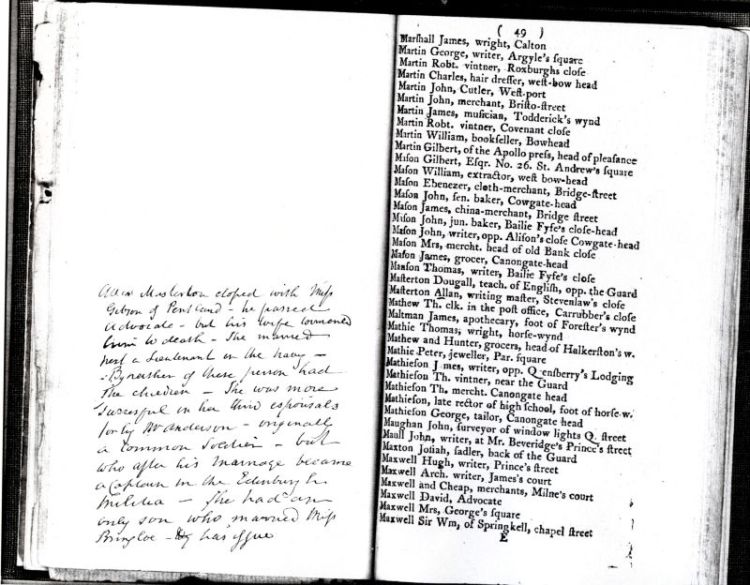 Allan Masterton eloped with Miſs
Gibson of Pentland - he passed
Advocate - but his wife tormented
him to death - She married
next a Lieutenant in the Navy -
By neither of these person had
She children - She was more
Sucessful in her third espousals
for by Mr Anderson - originally
a Common Soldier - but
who after his Marriage became
a Captain in the Edinburgh
Militia - She had an
only son who married Miſs
has iſsue
( 49 )
Marſhall James, wright, Calton
Martin George, writer, Argyle's ſquare
Martin Robt. vintner, Roxburghs cloſe
Martin Charles, hair dreſſer, weſt-bow head
Martin John, Cutler, Weſt-port
Martin John, merchant, Briſto-ſtreet
Martin James, muſician, Todderick's wynd
Martin Robt. vintner, Covenant cloſe
Martin William, bookſeller, Bowhead
Martin Gilbert, of the Apollo preſs, head of pleaſance
Maſon Gilbert, Eſqr. No. 26. St. Andrew's ſquare
Maſon William, extractor, weſt bow-head
Maſon Ebenezer, cloth-merchant, Bridge-ſtreet
Maſon John, ſen. baker, Cowgate-head
Maſon James, china-merchant, Bridge ſtreet
Maſon John, jun. baker, Bailie Fyfe's cloſe-head
Maſon John, writer, opp. Aliſon's cloſe Cowgate-head
Maſon Mrs, mercht. head of old Bank cloſe
Maſon James, grocer, Canongate-head
Manſon Thomas, writer, Bailie Fyfe's cloſe
Maſterton Dougall, teach. of Engliſh, opp. the Guard
Maſterton Allan, writing maſter, Stevenlaw's cloſe
Mathew Th. clk. in the poſt office, Carrubber's cloſe
Maltman James, apothecary, foot of Foreſter's wynd
Mathie Thomas, wright, horſe-wynd
Mathew and Hunter, grocers, head of Halkerſton's w.
Mathie Peter, jeweller, Par. ſquare
Mathieſon James, writer, opp. Queenſberry's Lodging
Mathieſon Th. vintner, near the Guard
Mathieſon Th. mercht. Canongate head
Mathieſon, late rector of high ſchool, foot of horſe w.
Mathieſon George, tailor, Canongate head
Maughan John, ſurveyor of window lights Q. ſtreet
Maull John, writer, at Mr. Beveridge's Prince's ſtreet
Maxton Joſiah, ſadler, back of the Guard
Maxwell Hugh, writer, Prince's ſtreet
Maxwell Arch. writer, James's court
Maxwell and Cheap, merchants, Milne's court
Maxwell David, Advocate
Maxwell Mrs, George's ſquare
Maxwell Sir Wm, of Springkell, chapel ſtreet
E